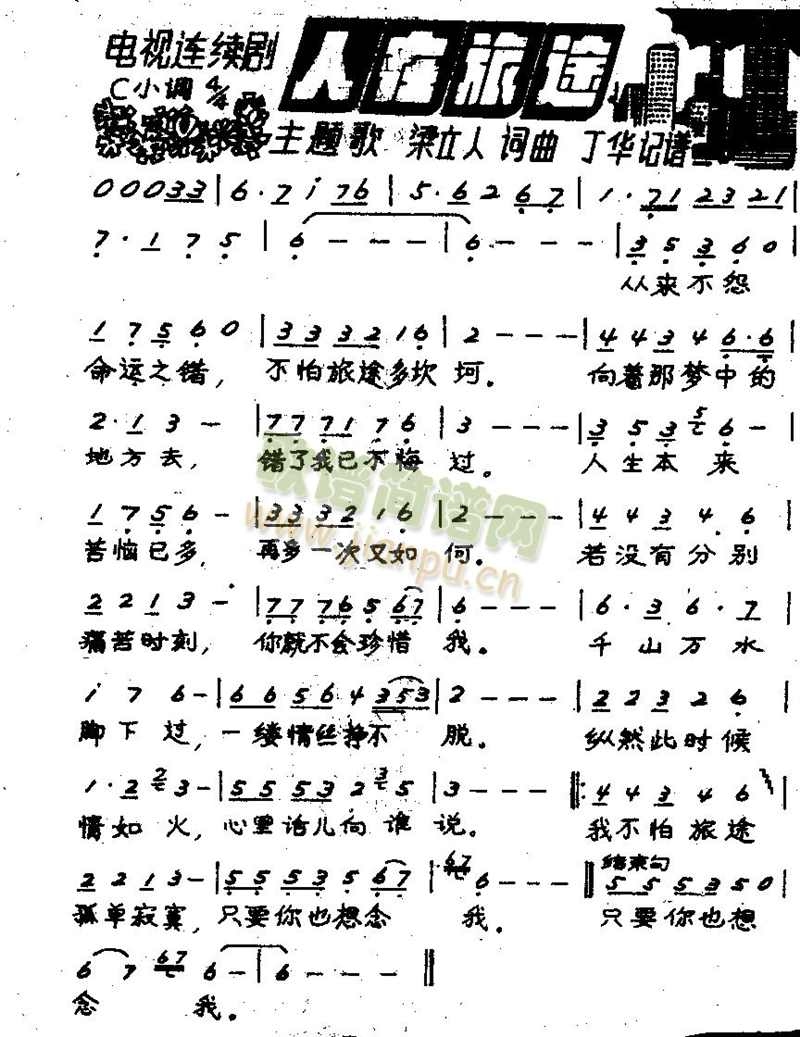 电视连续剧
人在旅途
C小调 4/4
主题歌 梁立人 词曲 丁华记谱
0 0 0 3 3 | 6 · 7 i 7 6 | 5 · 6 2 6 7 | 1 · 7 1 2 3 2 1 |
7 · 1 7 5 | 6 - - - | 6 - - - | 3 5 3 6 0
从来不怨
1 7 5 6 0 | 3 3 3 2 1 6 | 2 - - - | 4 4 3 4 6 · 6 |
命运之错, 不怕旅途多坎坷。 向着那梦中的
2 · 1 3 - | 7 7 7 1 7 6 | 3 - - - | 3 5 3 5 6 - |
地方去, 错了我已不悔过。 人生本来
1 7 5 6 - | 3 3 3 2 1 6 | 2 - - - | 4 4 3 4 6 |
苦恼已多, 再多一次又如何。 若没有分别
2 2 1 3 - | 7 7 7 6 5 6 7 | 6 - - - | 6 · 3 6 · 7 |
痛苦时刻, 你就不会珍惜我。 千山万水
i 7 6 - | 6 6 5 6 4 3 5 3 | 2 - - - | 2 2 3 2 6 |
脚下过, 一缕情丝挣不脱。 纵然此时候
1 · 2 2 3 - | 5 5 5 3 2 3 5 | 3 - - - |: 4 4 3 4 6 |
情如火, 心里话儿向谁说。 我不怕旅途
结束句
2 2 1 3 - | 5 5 5 3 5 6 7 | 6 7 6 - - - || 5 5 5 3 5 0 |
孤单寂寞, 只要你也想念我。 只要你也想
6 7 6 7 6 - | 6 - - - ||
念我。
歌谱简谱网
www.jianpu.cn